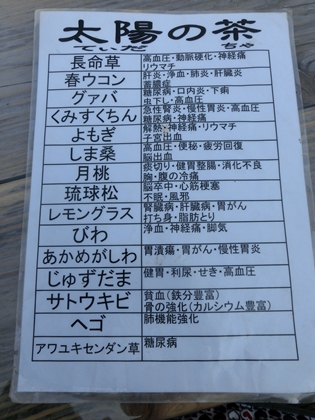 太陽の茶
てぃだ ちゃ
長命草 高血圧・動脈硬化・神経痛
リウマチ
春ウコン 肝炎・浄血・肺炎・肝臓炎
蓄膿症
グァバ 糖尿病・口内炎・下痢
虫下し・高血圧
くみすくちん 急性腎炎・慢性胃炎・高血圧
糖尿病・神経痛
よもぎ 解熱・神経痛・リウマチ
子宮出血
しま桑 高血圧・便秘・疲労回復
脳出血
月桃 痰切り・健胃整腸・消化不良
胸・腹の冷痛
琉球松 脳卒中・心筋梗塞
不眠・風邪
レモングラス 腎臓病・肝臓病・胃がん
打ち身・脂肪とり
びわ 浄血・神経痛・脚気
あかめがしわ 胃潰瘍・胃がん・慢性胃炎
じゅずだま 健胃・利尿・せき・高血圧
サトウキビ 貧血(鉄分豊富)
骨の強化(カルシウム豊富)
ヘゴ 肺機能強化
アワユキセンダン草 糖尿病